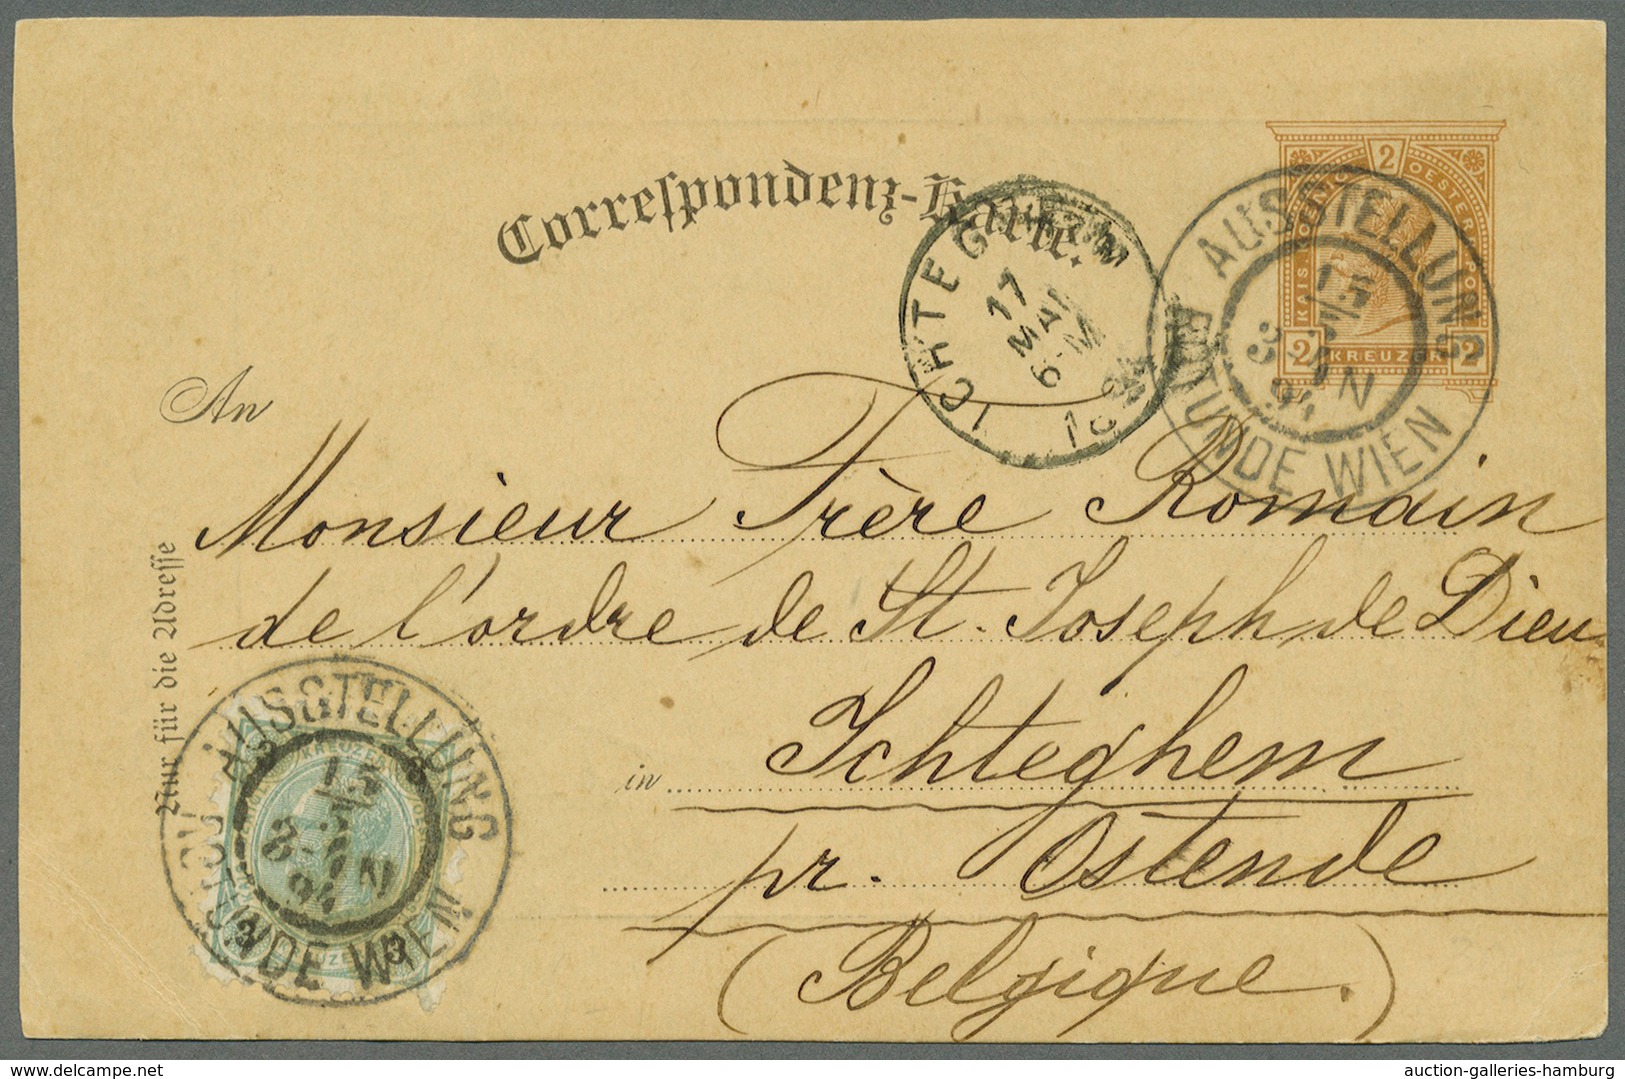 Correspondenz-Karte.
2
KAIS. KOENIGL. OESTERR. POST
2 KREUZER 2
AUSSTELLUNG
15
3 N
94
ROTUNDE WIEN
ICHTEGHEM
17
MAI
6-M
1894
An
Monsieur Frère Romain
de l'ordre de St. Joseph de Dieu
in Ichteghem
pr. Ostende
(Belgique.)
Nur für die Adresse
AUSSTELLUNG
15
3 N
94
ROTUNDE WIEN
3
3
3
3
KREUZER
delcampe.net
auction-galleries-hamburg